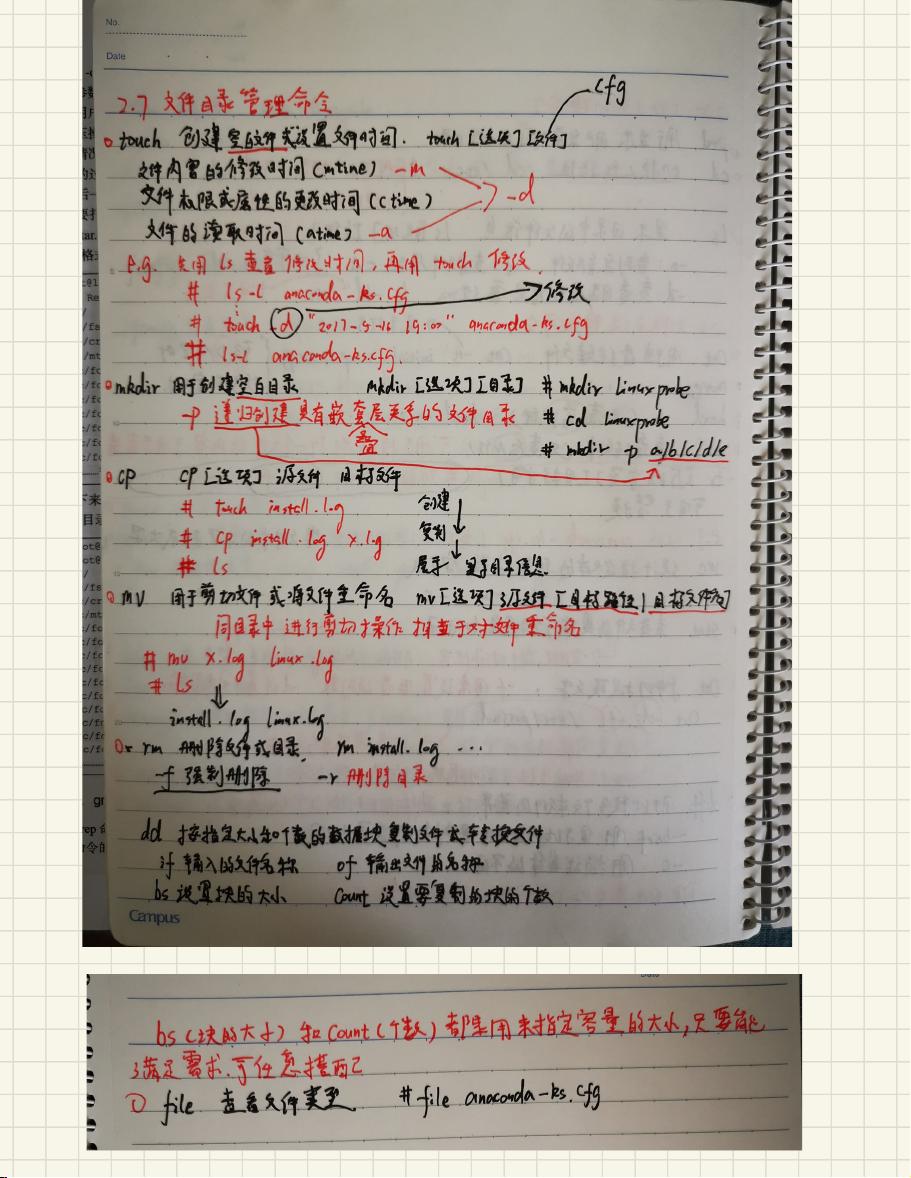 No.
Date
2.7 文件目录管理命令
cfg
touch 创建空白文件或设置文件时间. touch [选项][文件]
文件内容的修改时间(mtime) -m
文件权限或属性的更改时间(ctime) -d
文件的读取时间(atime) -a
e.g. 先用 ls 查看修改时间,再用 touch 修改.
# ls -l anaconda-ks.cfg 修改
# touch -d "2017-5-16 19:00" anaconda-ks.cfg
# ls -l anaconda-ks.cfg.
mkdir 用于创建空白目录 mkdir [选项][目录] # mkdir linuxprobe
-p 递归创建具有嵌套层关系的文件目录 # cd linuxprobe
# mkdir -p a/b/c/d/e
cp cp [选项] 源文件 目标文件
# touch install.log 创建
# cp install.log x.log 复制
# ls 显示目录信息.
mv 用于剪切文件或将文件重命名 mv[选项] 源文件 [目标路径|目标文件名]
同目录中进行剪切操作 相当于对文件重命名
# mv x.log linux.log
# ls
install.log linux.log
rm 删除文件或目录. rm install.log ...
-f 强制删除 -r 删除目录
dd 按指定大小和个数的数据块复制文件或转换文件
if 输入的文件名称 of 输出文件的名称
bs 设置块的大小 count 设置要复制的块的个数
Campus
bs(块的大小) 和 count(个数)都是用来指定容量的大小,只要能
满足需求,可任意搭配
file 查看文件类型 # file anaconda-ks.cfg